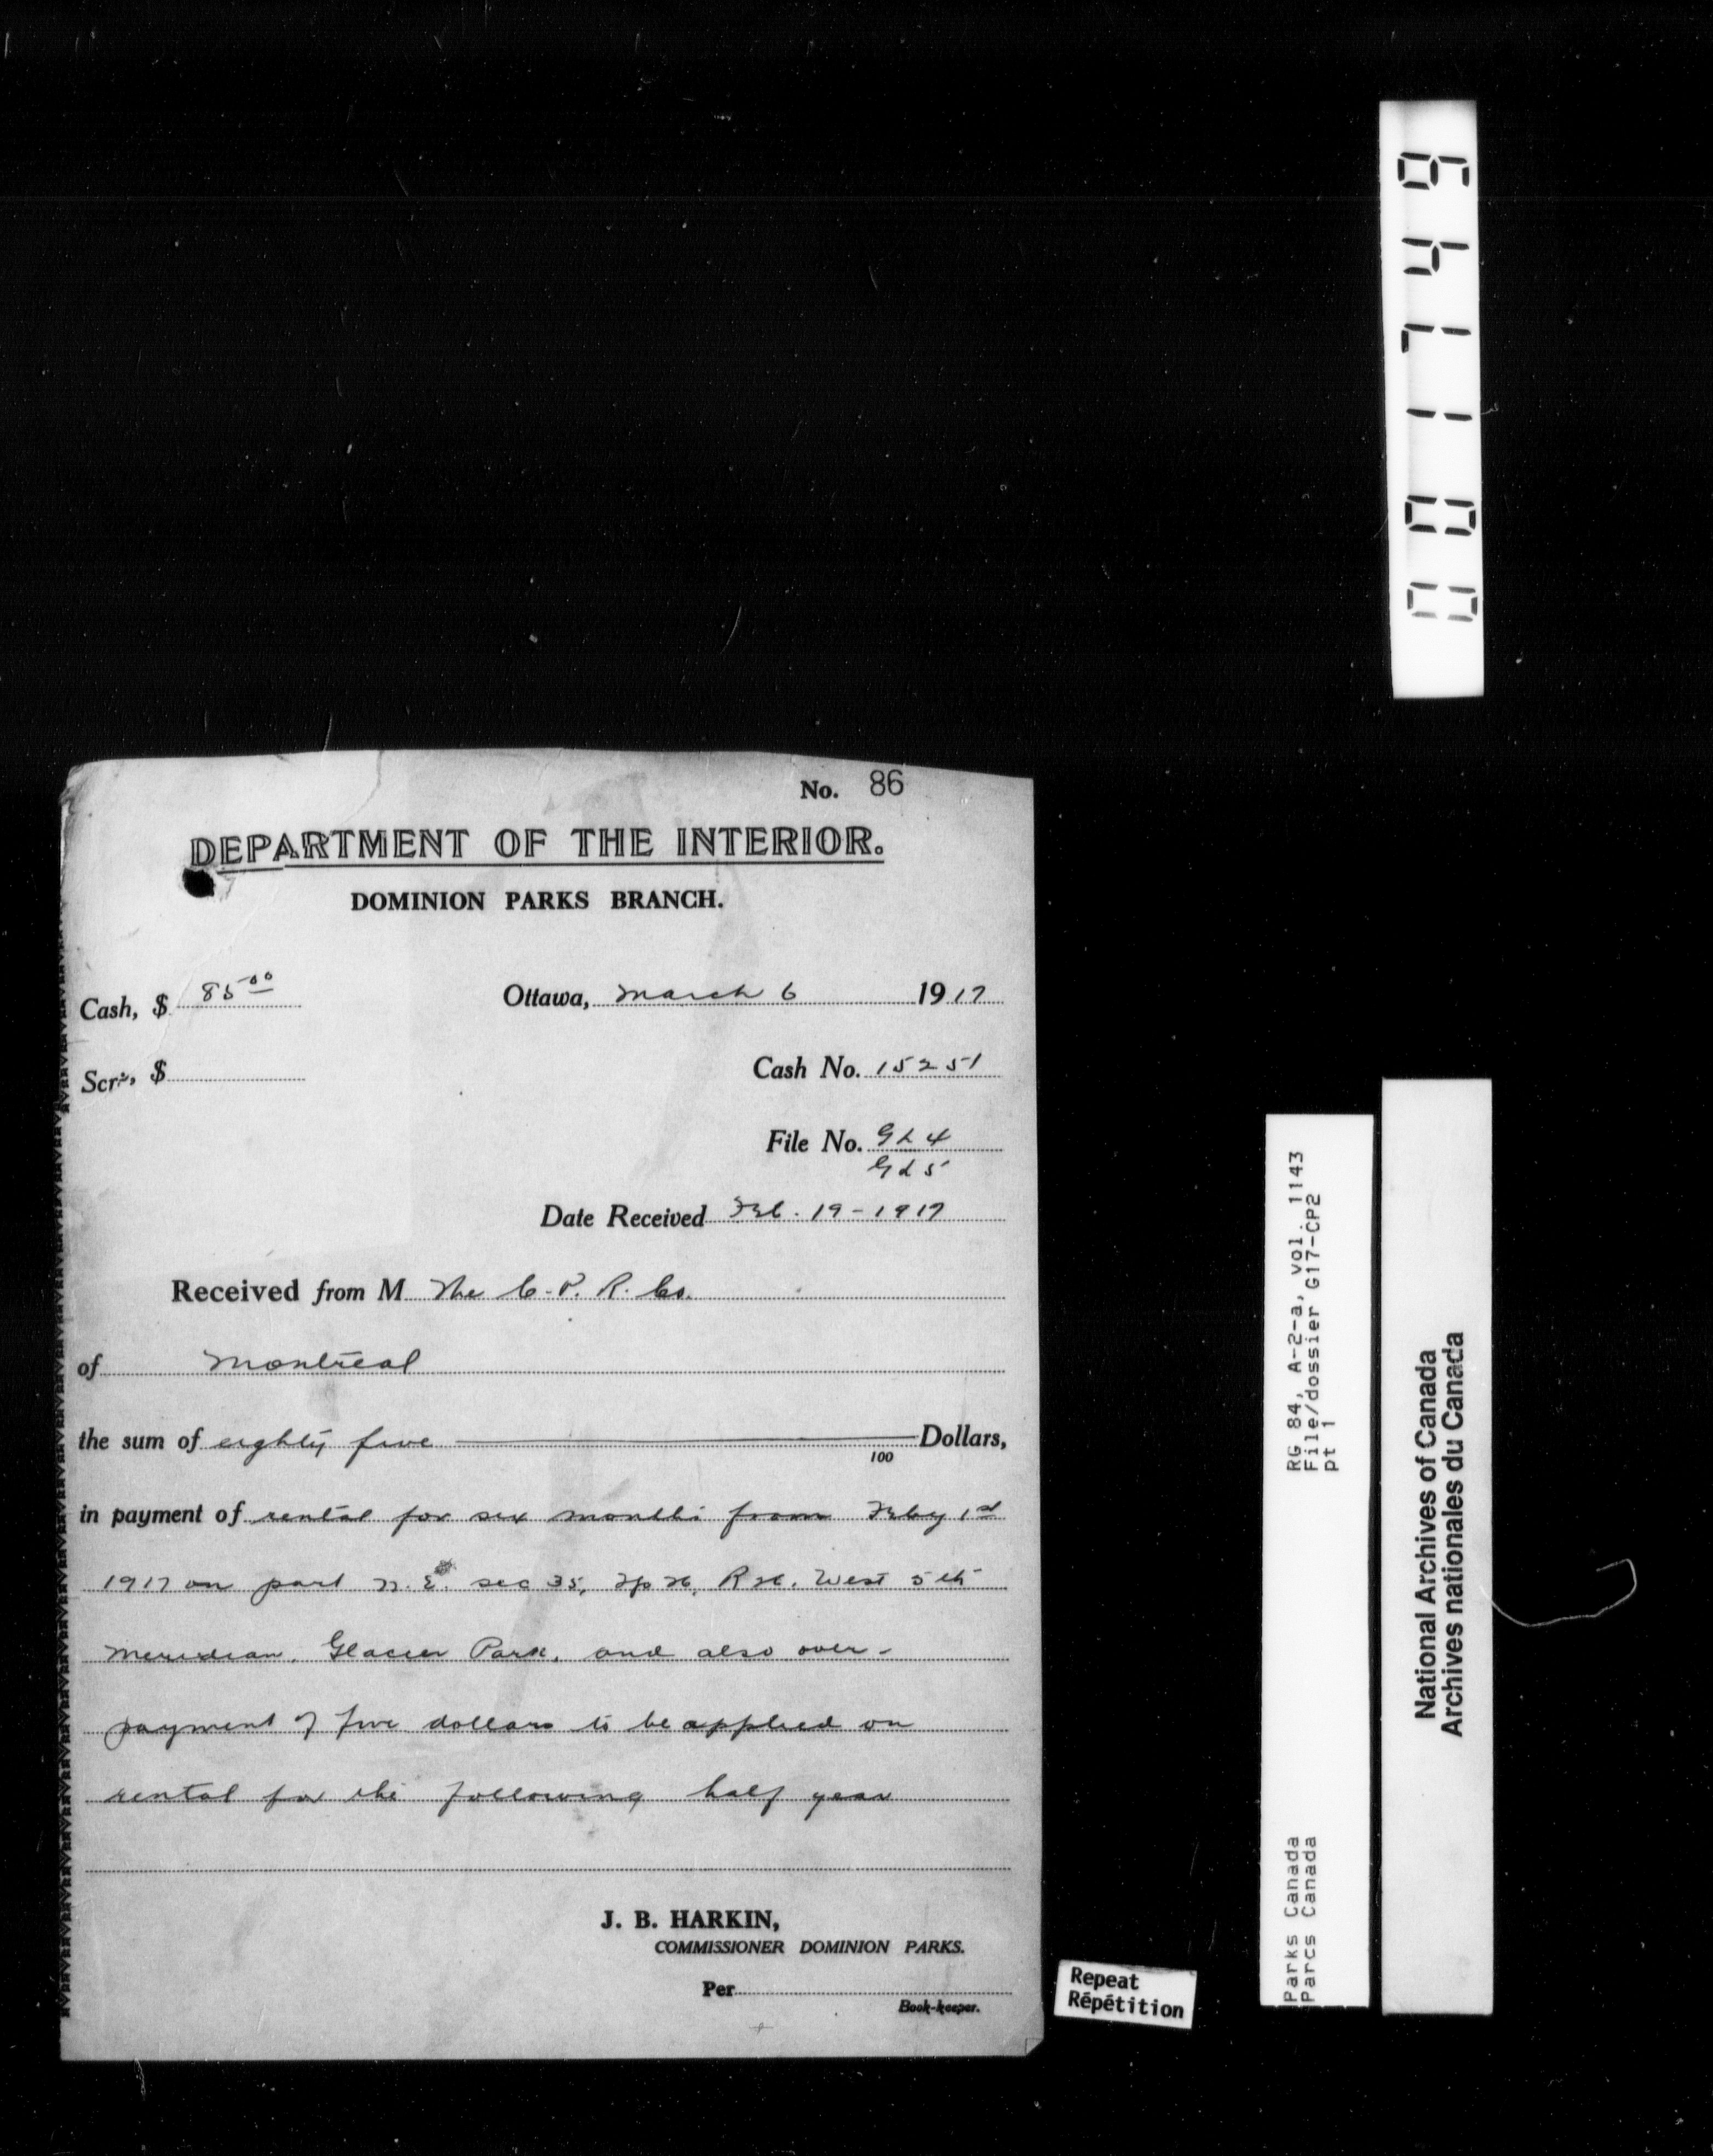 No. 86
DEPARTMENT OF THE INTERIOR.
DOMINION PARKS BRANCH.
Cash, $ 85.00
Ottawa, March 6 1917
Scrip, $
Cash No. 15251
File No. GL4
GL5
Date Received Feb. 19 - 1917
Received from M The C.P.R. Co.
of Montreal
the sum of eighty five 100 Dollars,
in payment of rental for six months from Feby 1st
1917 on part N.E. sec 35, Tp 26, R 26. West 5th
Meridian, Glacier Park, and also over-
payment of five dollars to be applied on
rental for the following half year
J. B. HARKIN,
COMMISSIONER DOMINION PARKS.
Per
Book-keeper.
Repeat
Répétition
001749
RG 84, A-2-a, vol. 1143
File/dossier G17-CP2
pt 1
Parks Canada
Parcs Canada
National Archives of Canada
Archives nationales du Canada